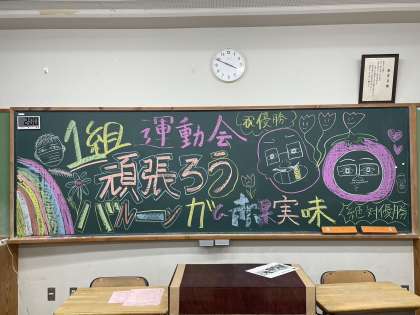 1組 運動会
祝優勝
頑張ろう
バルーンガ
実味
絶対優勝